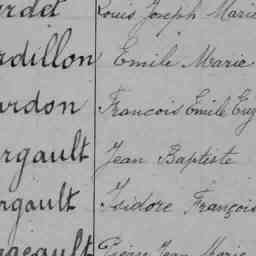 rdet Louis Joseph Marie
rdillon Emile Marie
ardon Francois Emile Eug
rgault Jean Baptiste
rgault Isidore François
Jean Marie